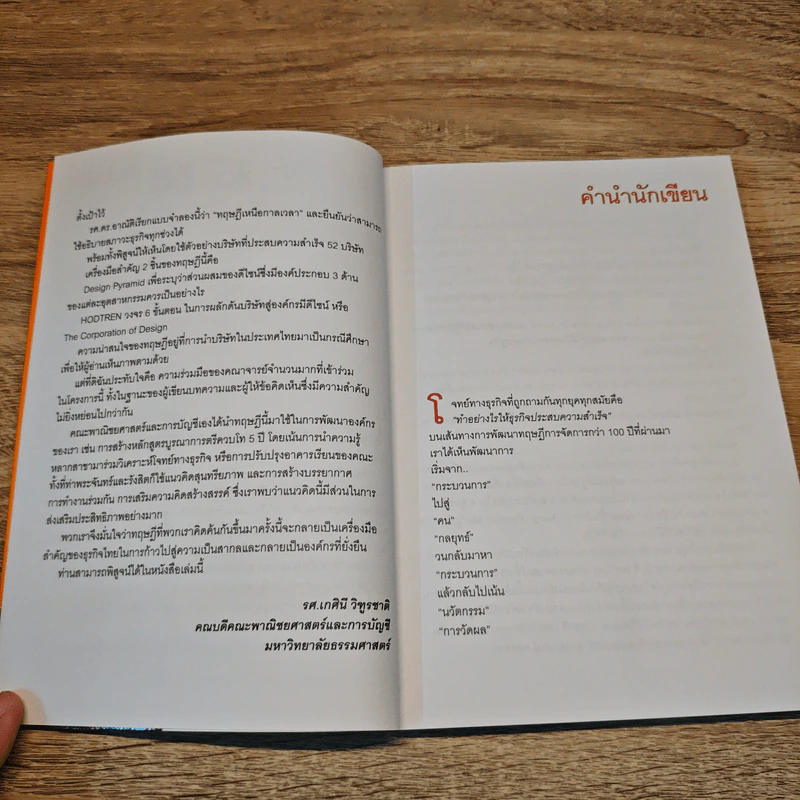 ตั้งเป้าไว้
รศ.ดร.อาณัติเรียกแบบจำลองนี้ว่า “ทฤษฎีเหนือกาลเวลา” และยืนยันว่าสามารถ
ใช้อธิบายสภาวะธุรกิจทุกช่วงได้
พร้อมทั้งพิสูจน์ให้เห็นโดยใช้ตัวอย่างบริษัทที่ประสบความสำเร็จ 52 บริษัท
เครื่องมือสำคัญ 2 ชิ้นของทฤษฎีนี้คือ
Design Pyramid เพื่อระบุว่าส่วนผสมของดีไซน์ซึ่งมีองค์ประกอบ 3 ด้าน
ของแต่ละอุตสาหกรรมควรเป็นอย่างไร
HODTREN วงจร 6 ขั้นตอน ในการผลักดันบริษัทสู่องค์กรมีดีไซน์ หรือ
The Corporation of Design
ความน่าสนใจของทฤษฎีอยู่ที่การนำบริษัทในประเทศไทยมาเป็นกรณีศึกษา
เพื่อให้ผู้อ่านเห็นภาพตามด้วย
แต่ที่ดิฉันประทับใจคือ ความร่วมมือของคณาจารย์จำนวนมากที่เข้าร่วม
ในโครงการนี้ ทั้งในฐานะของผู้เขียนบทความและผู้ให้ข้อคิดเห็นซึ่งมีความสำคัญ
ไม่ยิ่งหย่อนไปกว่ากัน
คณะพาณิชยศาสตร์และการบัญชีเองได้นำทฤษฎีนี้มาใช้ในการพัฒนาองค์กร
ของเรา เช่น การสร้างหลักสูตรบูรณาการตรีควบโท 5 ปี โดยเน้นการนำความรู้
หลากสาขามาร่วมวิเคราะห์โจทย์ทางธุรกิจ หรือการปรับปรุงอาคารเรียนของคณะ
ทั้งที่ท่าพระจันทร์และรังสิตก็ใช้แนวคิดสุนทรียภาพ และการสร้างบรรยากาศ
การทำงานร่วมกัน การเสริมความคิดสร้างสรรค์ ซึ่งเราพบว่าแนวคิดนี้มีส่วนในการ
ส่งเสริมประสิทธิภาพอย่างมาก
พวกเราจึงมั่นใจว่าทฤษฎีที่พวกเราคิดค้นกันขึ้นมาครั้งนี้จะกลายเป็นเครื่องมือ
สำคัญของธุรกิจไทยในการก้าวไปสู่ความเป็นสากลและกลายเป็นองค์กรที่ยั่งยืน
ท่านสามารถพิสูจน์ได้ในหนังสือเล่มนี้
รศ.เกศินี วิฑูรชาติ
คณบดีคณะพาณิชยศาสตร์และการบัญชี
มหาวิทยาลัยธรรมศาสตร์
คำนำนักเขียน
โจทย์ทางธุรกิจที่ถูกถามกันทุกยุคทุกสมัยคือ
“ทำอย่างไรให้ธุรกิจประสบความสำเร็จ”
บนเส้นทางการพัฒนาทฤษฎีการจัดการกว่า 100 ปีที่ผ่านมา
เราได้เห็นพัฒนาการ
เริ่มจาก..
“กระบวนการ”
ไปสู่
“คน”
“กลยุทธ์”
วนกลับมาหา
“กระบวนการ”
แล้วกลับไปเน้น
“นวัตกรรม”
“การวัดผล”